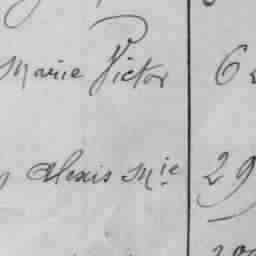 Marie Victor 6
Alexis Mie 29